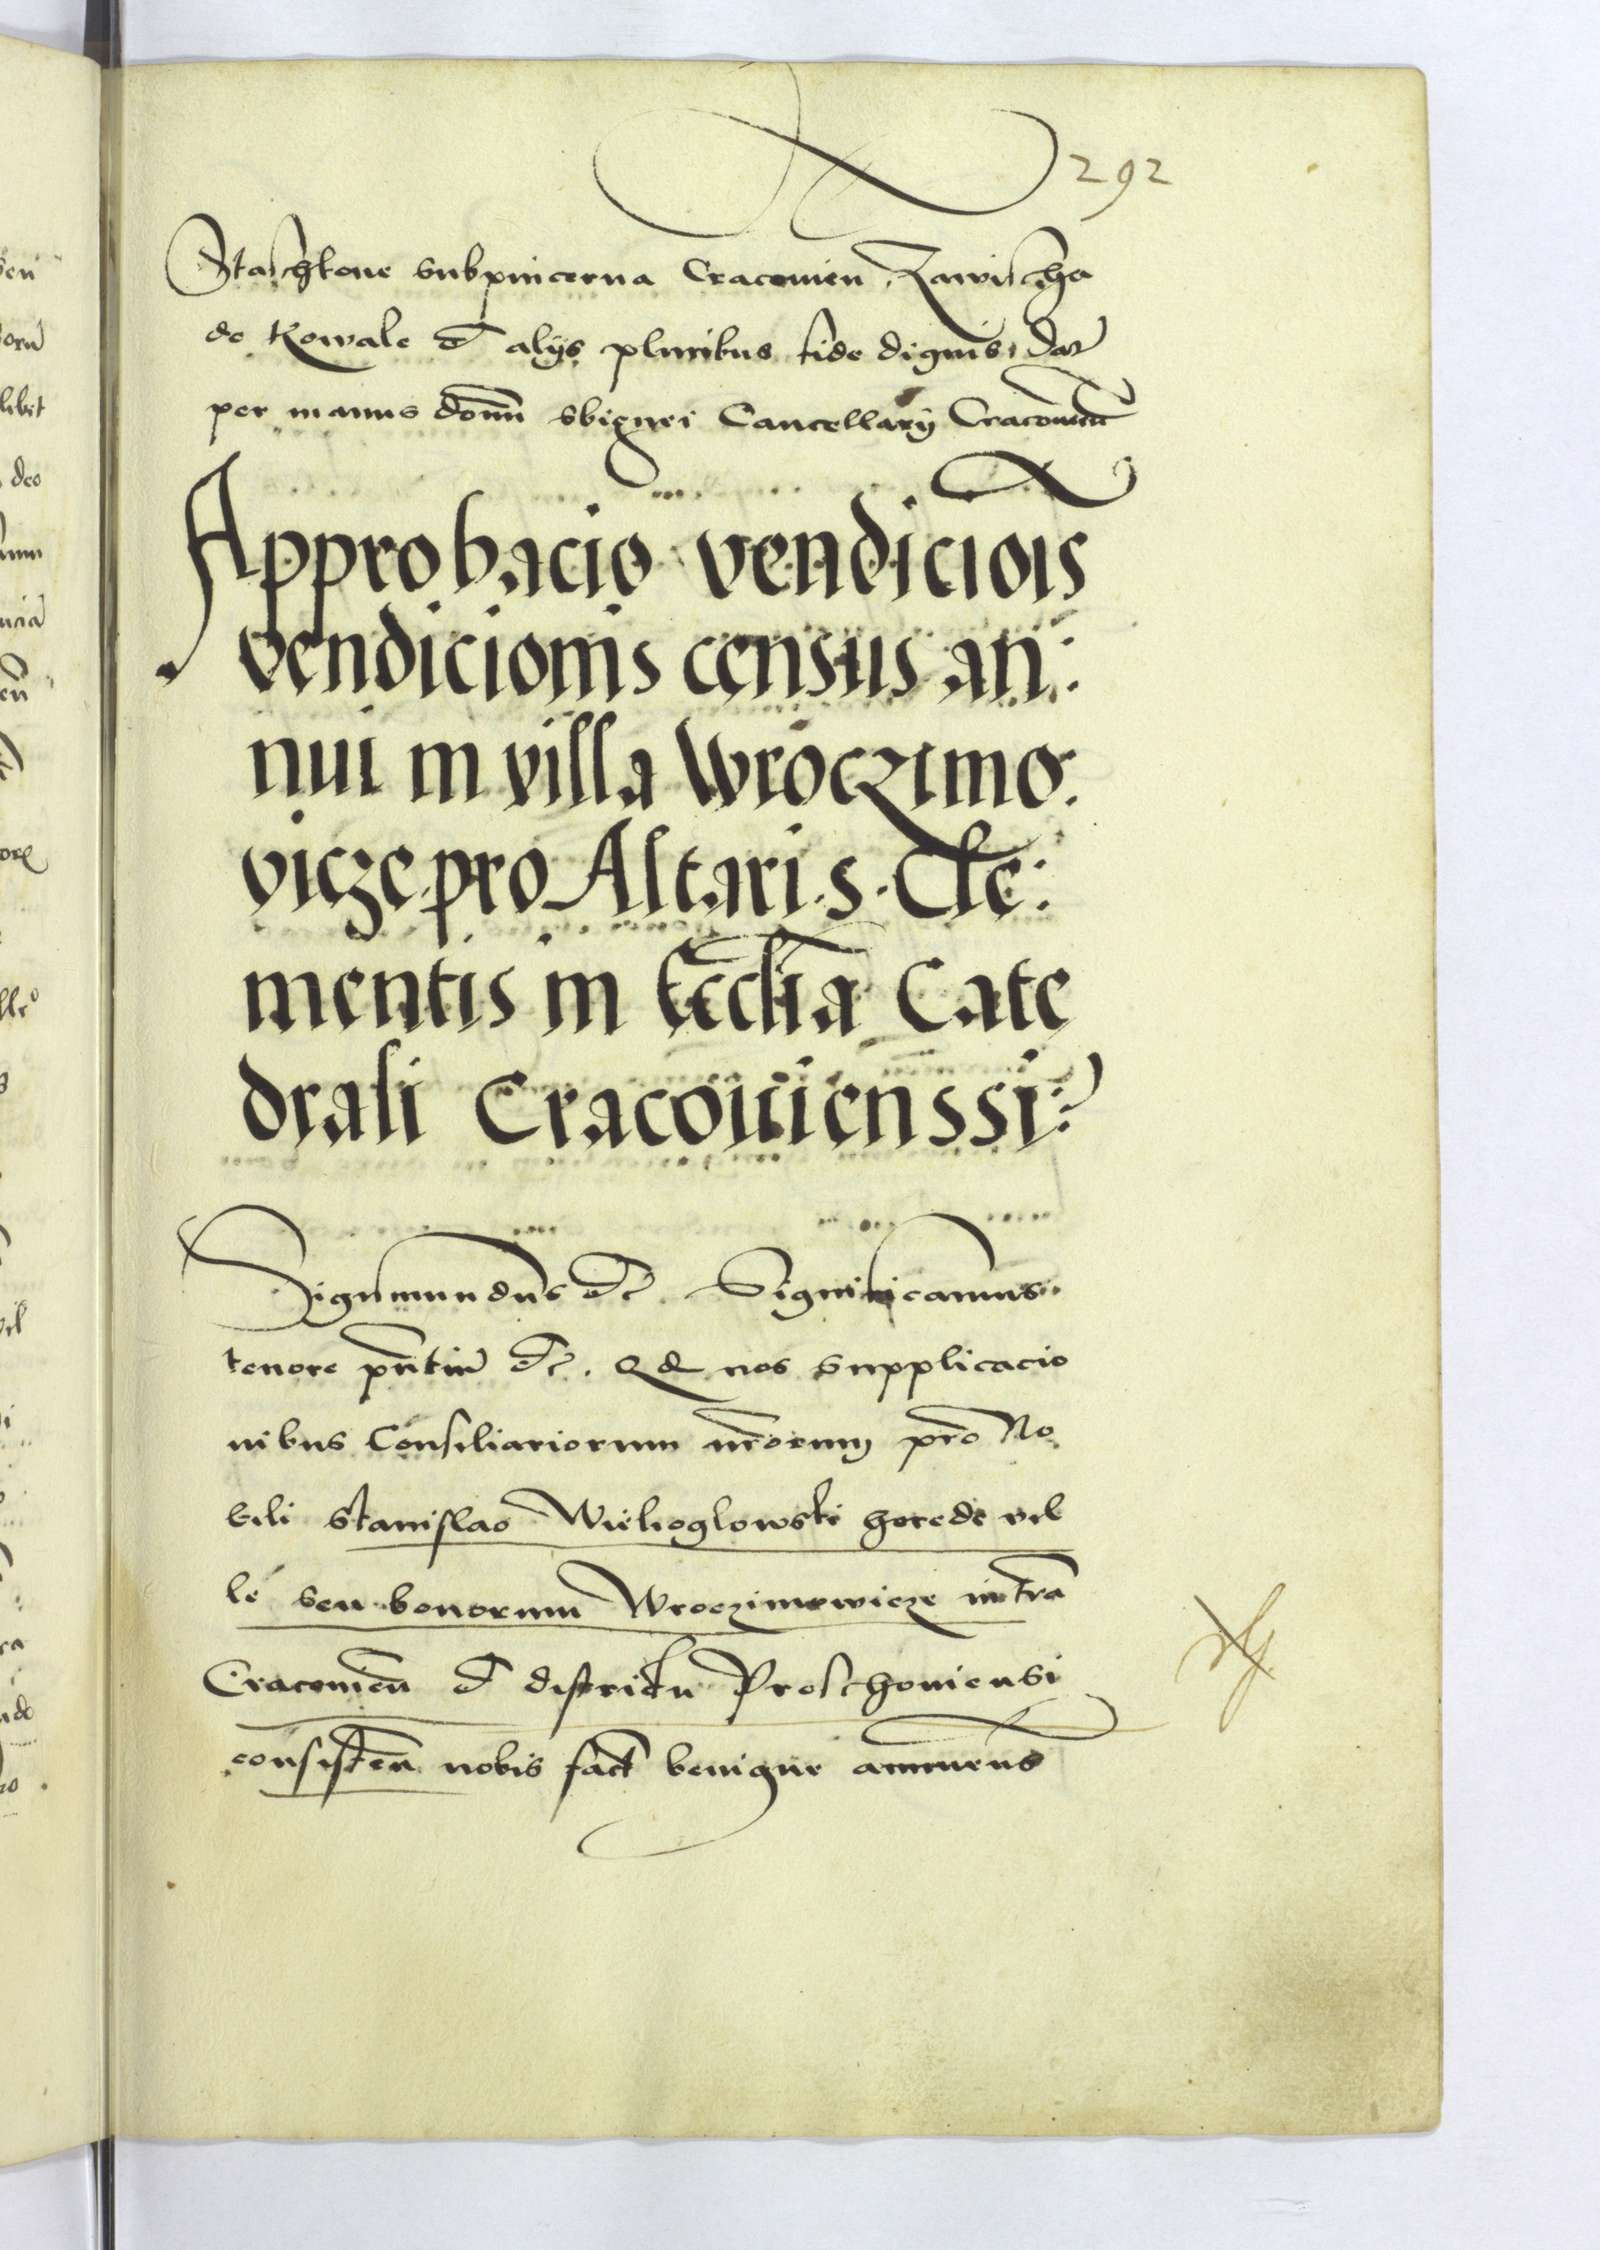 292
Staschkone subpincerna Cracouien Zawischa
de Kowale et alijs pluribus fide dignis, Dat
per manus domi Sbignei Cancellarij Cracouien
Approbacio vendiciois
vendicionis census an:
nui in villa Wroczimo:
vicze pro Altari. S. Cle:
mentis in Ecclia Cate
drali Cracouienssi:
Sigismundus etc. Significamus
tenore pntiu etc. Qd nos supplicacio
nibus Consiliariorum nrorum pro No
bili Stanislao Wielioglowski herede vil
le seu bonorum Wroczimowicze in tra
Cracouien et districtu Proschouiensi
consisten nobis fact benigne annuens